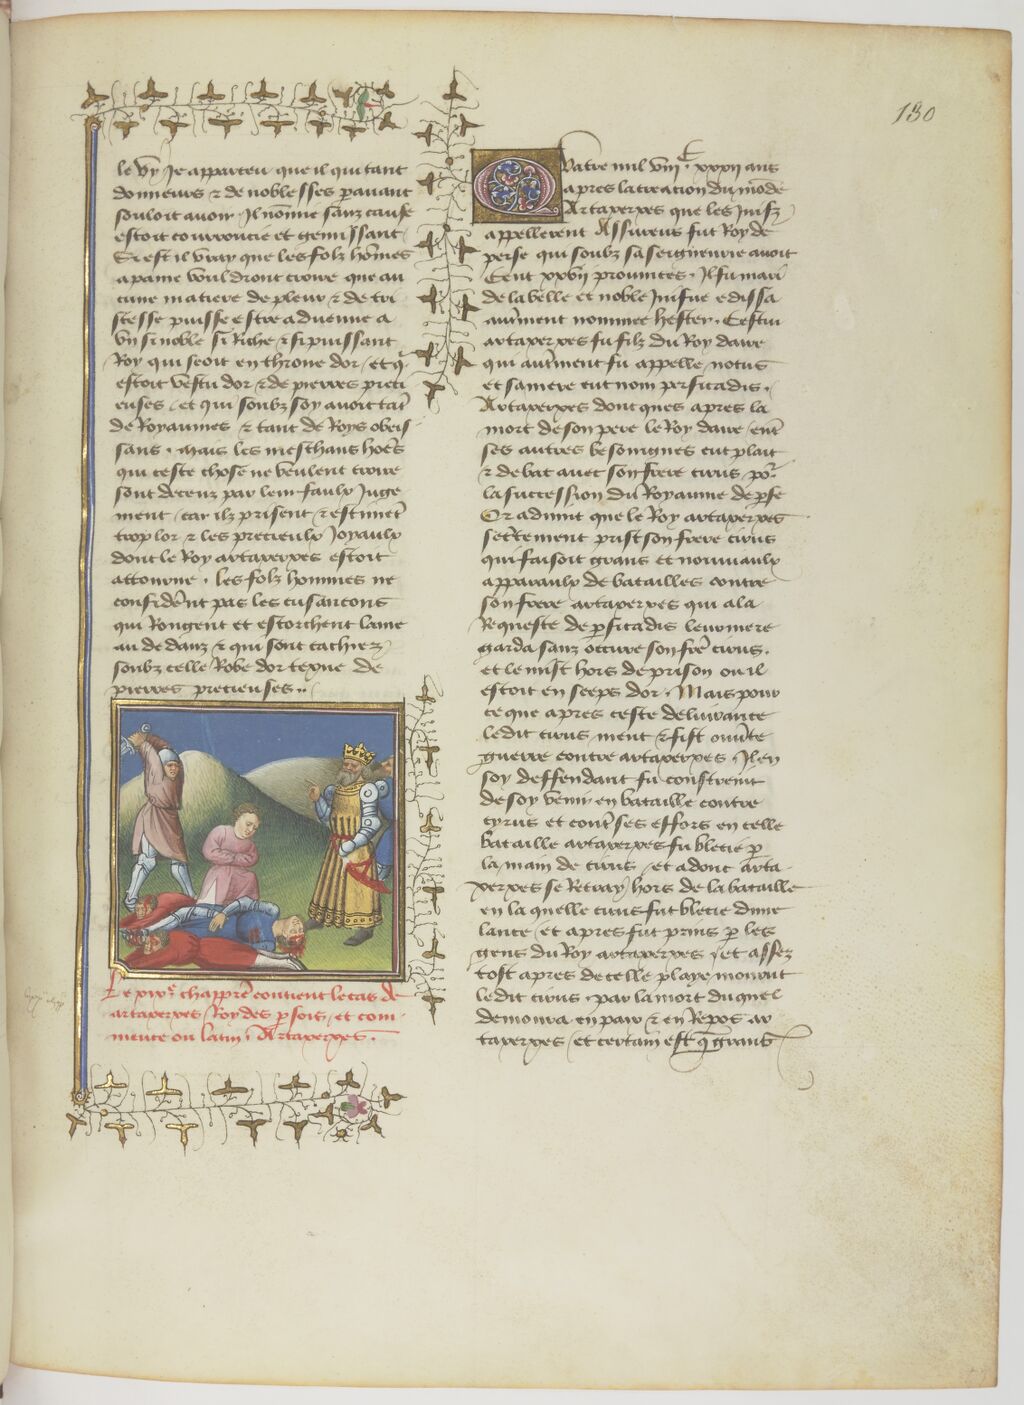 130
le vy Je apparceu que il qui tant
donneurs & de noblesses par avant
souloit avoir. Il nõme sanz cause
estoit courroucie et gemissant
Si est il vray que les folz hõmes
a paine vouldront croire que au
cune matiere de pleur & de tri
stesse puisse estre aduenue a
vn si noble si riche & si puissant
Roy qui seoit en throne dor / et q̃
estoit vestu dor & de pierres preti
euses / et qui soubz soy auoit tãt
de Royaumes & tant de Roys obeis
sans. Mais les meschans hoẽs
qui ceste chose ne veulent croire
sont deceuz par leur faulx Juge
ment / car ilz prisent & estimẽt
trop lor & les precieulx Joyaulx
dont le Roy artaxerxes estoit
attourne. les folz hommes ne
considerẽt pas les cusancons
qui Rongent et escorchent lame
au dedanz & qui sont cachiez
soubz celle Robe dor texue de
pierres precieuses..
Le xix.e chappr̃e contient le cas de
artaxerxes Roy des persois / et com
mence ou latin Artaxerxes.
Quatre mil viij.c xxxij ans
apres la creation du mõde
Artaxerxes que les Juifz
appellerent Assuerus fut Roy de
perse qui soubz sa seigneurie auoit
Cent xxvij prouinces. Il fu mari
de la belle et noble Juifue edissa
autr̃ment nommee hester. Cestui
artaxerxes fu filz du Roy daire
qui autr̃ment fu appelle notus
et sa mere eut nom persicadis.
Artaxerxes doncques apres la
mort de son pere le Roy daire / entr̃
ses autres besoingnes eut plait
& debat auec son frere cirus po.r
la succession du Royaume de p̃se
Or aduint que le Roy artaxerxes
secr̃tement prist son frere cirus
qui faisoit grans et nouueaulx
apparaulx de batailles contre
son frere artaxerxes qui a la
Requeste de p̃sicadis leur mere
garda sanz occire son frẽ cirus.
et le mist hors de prison ou il
estoit en seeps dor. Mais pour
ce que apres ceste deliurance
ledit cirus ment & fist ouu̾te
guerre contre artaxerxes. Il en
soy deffendant fu constreint
de soy venir en bataille contre
cyrus et contr̃ ses effors en celle
bataille artaxerxes fu blecie p̱
la main de cirus / et adonc arta
xerxes se Retray hors de la bataille
en la quelle cirus fut blecie dune
lance / et apres fut prins p̱ les
gens du Roy artaxerxes / et assez
tost apres de celle playe mourut
ledit cirus. par la mort du quel
demoura en paix & en Repos ar
taxerxes / et certain est q̃ grans